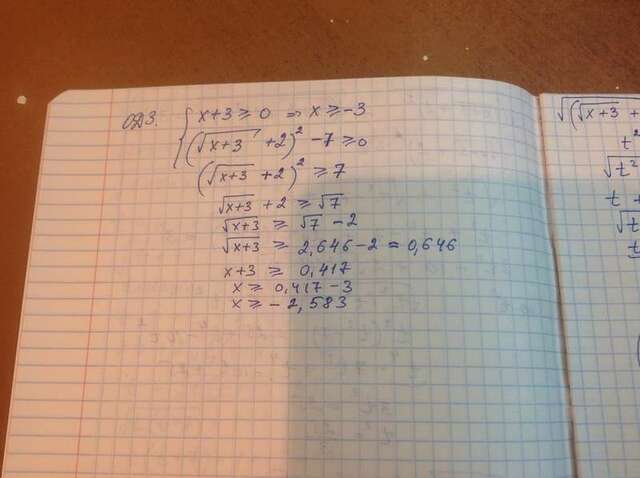 ОДЗ. { x+3 ≥ 0 ⇒ x ≥ -3
(√(x+3) +2)² -7 ≥ 0
(√(x+3) +2)² ≥ 7
√(x+3) +2 ≥ √7
√(x+3) ≥ √7 -2
√(x+3) ≥ 2,646-2 = 0,646
x+3 ≥ 0,417
x ≥ 0,417-3
x ≥ -2,583
√((√(x+3) +
t²
√t²
t +
√t
t